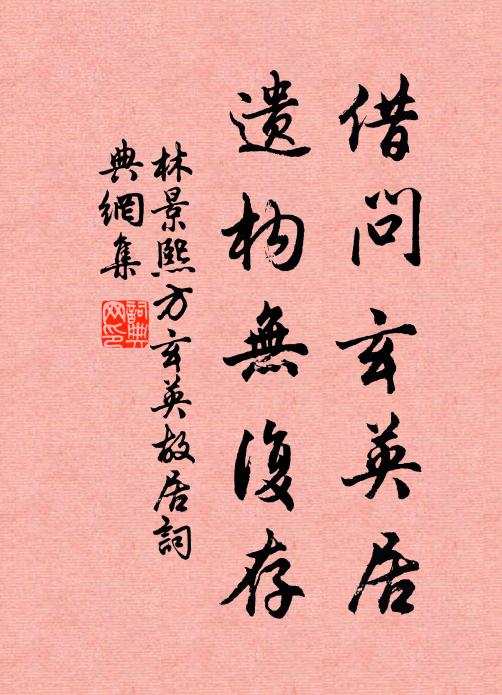 借问玄英居
遗构無復存
林景熙方玄英故居詞
典網集
詞典网印